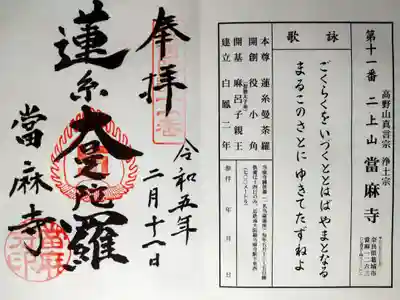 第十一番
高野山真言宗 浄土宗
二上山 當麻寺
奈良県葛城市
當麻一二六三
詠歌
ごくらくをいづくとととはばやまとなる
まるこのさとに ゆきてたずねよ
本尊 蓮糸曼荼羅
開創 役小角
開基 麻呂子親王
建立 白鳳二年
参拝 年 月 日
奉拝
令和五年
二月十八日
蓮糸大曼陀羅
當麻寺